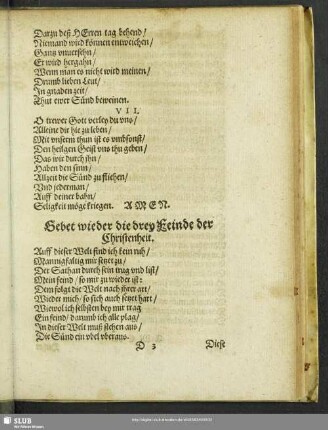 Darzu deß HErren tag behend/
Niemand wird können entweichen/
Gantz vnuersehn/
Er wird hergahn/
Wenn man es nicht wird meinen/
Drumb lieben Leut/
In gnaden zeit/
Thut ewer Sünd beweinen.
VII.
O trewer Gott verley du vns/
Alleine dir hie zu leben/
Mit vnserm thun ist es vmbsonst/
Den heilgen Geist vns thu geben/
Das wir durch jhn/
Haben den sinn/
Allzeit die Sünd zu fliehen/
Vnd jederman/
Auff deiner bahn/
Seligkeit möge kriegen. AMEN.
Gebet wieder die drey Feinde der
Christenheit.
Auff dieser Welt find ich kein ruh/
Mannigfaltig mir setzet zu/
Der Sathan durch sein trug vnd list/
Mein feind/ so mir zu wieder ist:
Dem folgt die Welt nach jhrer art/
Wieder mich/ so sich auch setzet hart/
Wiewol ich selbsten bey mir trag
Ein feind/ darumb ich alle plag/
In dieser Welt muß stehen aus/
Die Sünd ein vbel vberaus.
D 3 Diese
SLUB